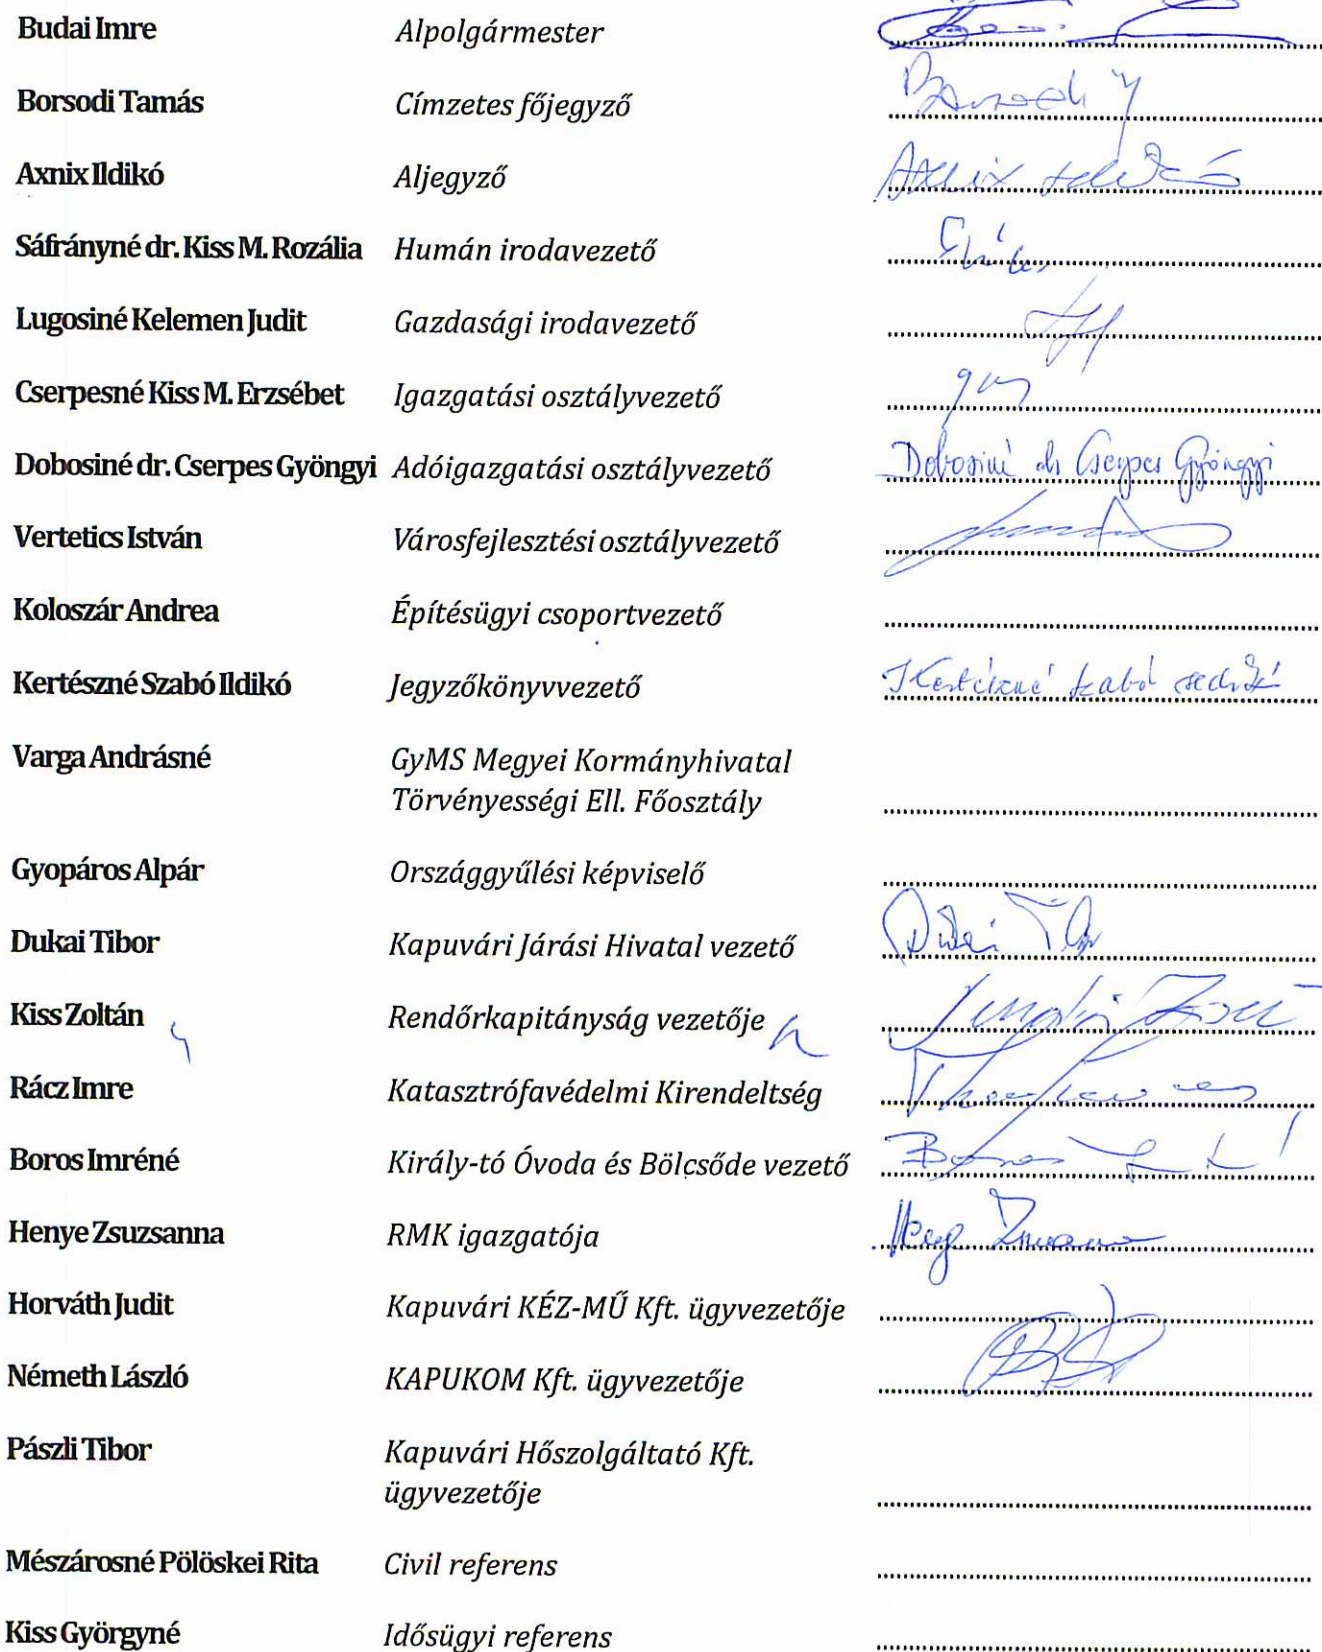 Budai Imre Alpolgármester
Borsodi Tamás Címzetes főjegyző Borsodi
Axnix Ildikó Aljegyző Axnix Ildikó
Sáfrányné dr. Kiss M. Rozália Humán irodavezető
Lugosiné Kelemen Judit Gazdasági irodavezető
Cserpesné Kiss M. Erzsébet Igazgatási osztályvezető
Dobosiné dr. Cserpes Gyöngyi Adóigazgatási osztályvezető Dobosiné dr Cserpes Gyöngyi
Vertetics István Városfejlesztési osztályvezető
Koloszár Andrea Építésügyi csoportvezető
Kertészné Szabó Ildikó Jegyzőkönyvvezető Kertészné Szabó Ildikó
Varga Andrásné GyMS Megyei Kormányhivatal
Törvényességi Ell. Főosztály
Gyopáros Alpár Országgyűlési képviselő
Dukai Tibor Kapuvári Járási Hivatal vezető
Kiss Zoltán Rendőrkapitányság vezetője
Rácz Imre Katasztrófavédelmi Kirendeltség
Boros Imréné Király-tó Óvoda és Bölcsőde vezető Boros
Henye Zsuzsanna RMK igazgatója
Horváth Judit Kapuvári KÉZ-MŰ Kft. ügyvezetője
Németh László KAPUKOM Kft. ügyvezetője
Pászli Tibor Kapuvári Hőszolgáltató Kft.
ügyvezetője
Mészárosné Pölöskei Rita Civil referens
Kiss Györgyné Idősügyi referens